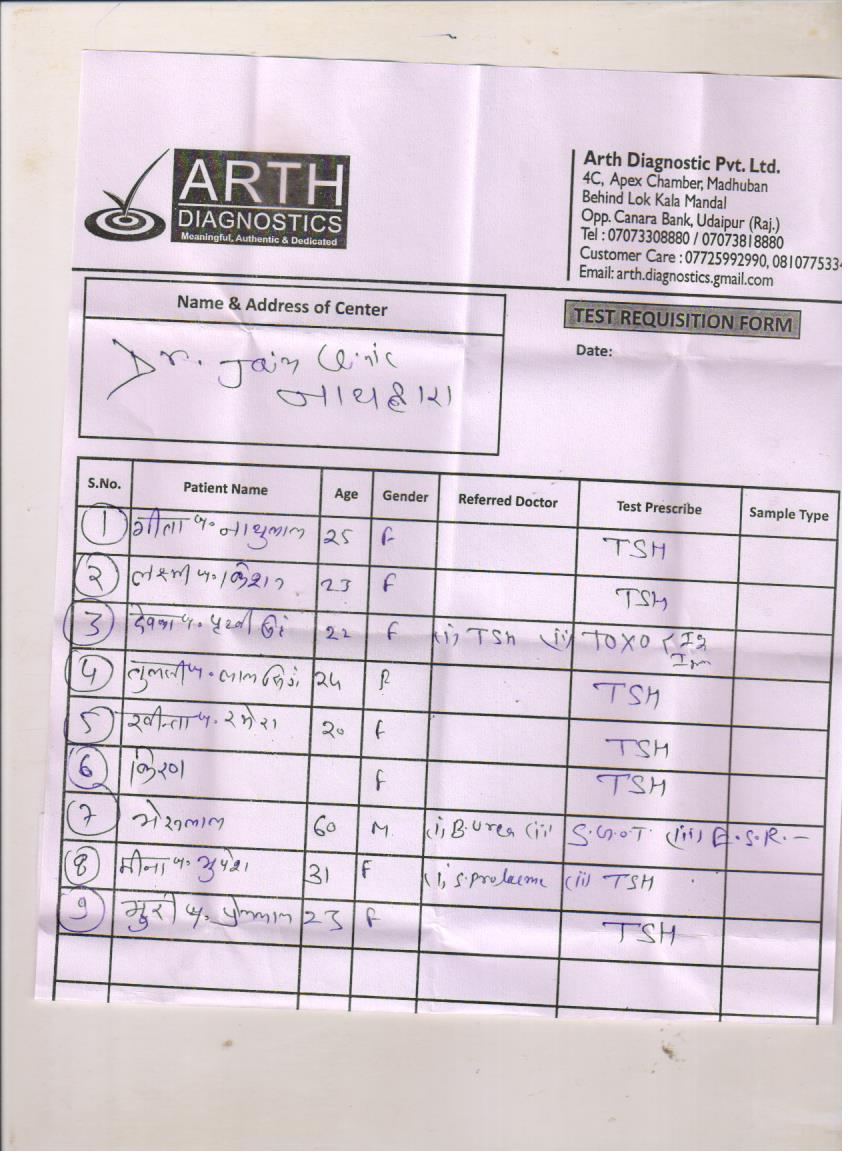 ARTH
DIAGNOSTICS
Meaningful, Authentic & Dedicated
Arth Diagnostic Pvt. Ltd.
4C, Apex Chamber, Madhuban
Behind Lok Kala Mandal
Opp. Canara Bank, Udaipur (Raj.)
Tel : 07073308880 / 07073818880
Customer Care : 07725992990, 0810775334
Email: arth.diagnostics.gmail.com
Name & Address of Center
TEST REQUISITION FORM
Date:
Dr. Jain Clinic
नाथद्वारा
S.No. Patient Name Age Gender Referred Doctor Test Prescribe Sample Type
1 गीता प. नाथुलाल 25 F TSH
2 लक्ष्मी प. किशन 23 F TSH
3 देवका प. पृथ्वी सिं 22 F (i) TSH (ii) TOXO < Ig
Im
4 तुलसी प. लाल सिंह 24 F TSH
5 प. रमेश 20 F TSH
6 किरण F TSH
7 60 M. (i) B. Urea (ii) S.G.O.T. (iii) E.S.R. -
8 मीना प. 31 F (i) S. (ii) TSH
9 प. 23 F TSH